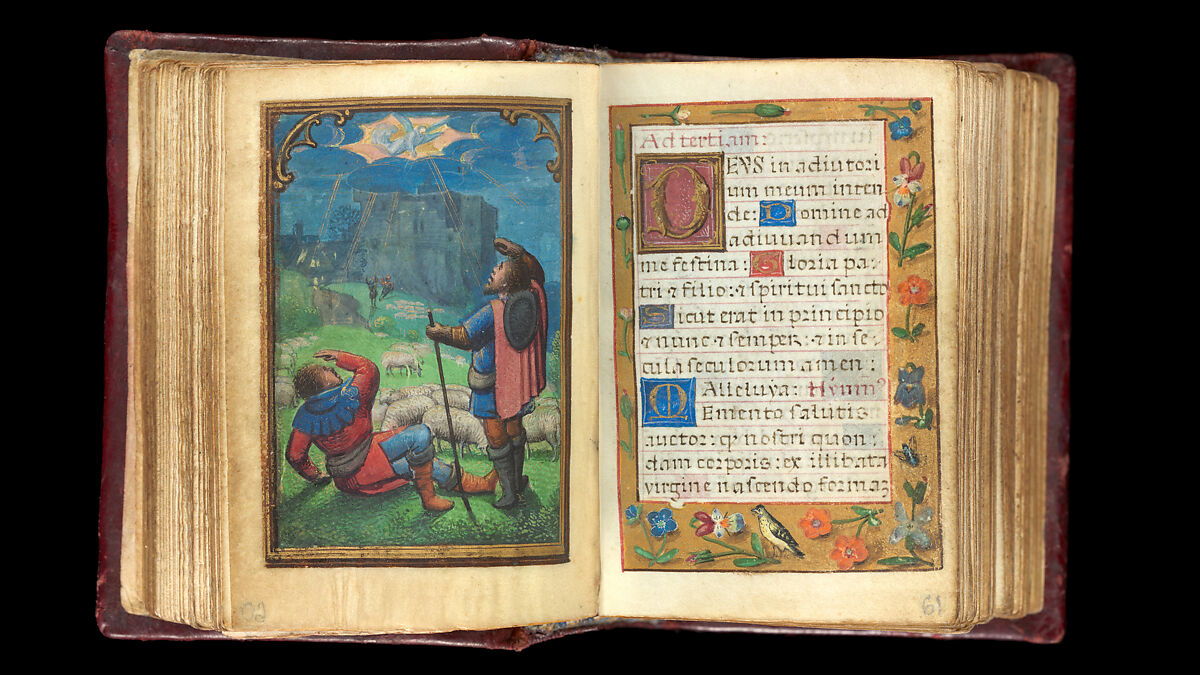 Ad tertiam:
DEVS in adiutori
um meum inten
de: Domine ad
adiuuandum
me festina: Gloria pa-
tri ⁊ filio: ⁊ spiritui sancto
Sicut erat in principio
⁊ nunc ⁊ semper: ⁊ in se-
cula seculorum amen:
Alleluya: Hymnꝰ
Memento salutis
auctor: ꝙ nostri quon-
dam corporis: ex illibata
virgine nascendo formaꝫ
61